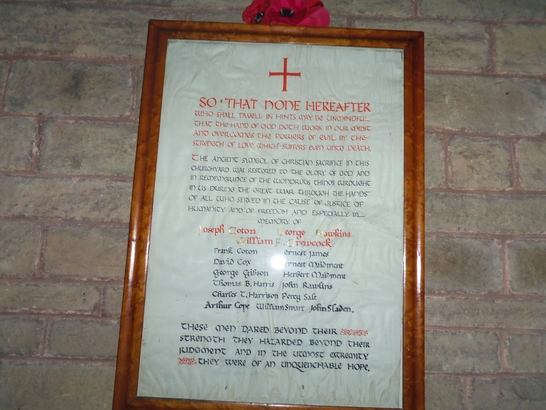 SO THAT NONE HEREAFTER
WHO SHALL DWELL IN HINTS MAY BE UNMINDFUL
THAT THE HAND OF GOD DOTH WORK IN OUR MIDST
AND OVERCOMES THE POWERS OF EVIL IN THE
STRENGTH OF LOVE WHICH SUFFERS EVEN UNTO DEATH,
THE ANCIENT SYMBOL OF CHRISTIAN SACRIFICE IN THIS
CHURCHYARD WAS RESTORED TO THE GLORY OF GOD AND
IN REMEMBRANCE OF THE WONDROUS THINGS WROUGHT
IN US DURING THE GREAT WAR THROUGH THE HANDS
OF ALL WHO SERVED IN THE CAUSE OF JUSTICE OF
HUMANITY AND OF FREEDOM AND ESPECIALLY IN
MEMORY OF
Joseph Coton George Hawkins
William Brawcock
Frank Coton Ernest James
David Cox Ernest Maidment
George Gibson Herbert Maidment
Thomas B. Harris John Rawlins
Charles T. Harrison Percy Salt
Arthur Cope William Smart John Sladen.
THESE MEN DARED BEYOND THEIR
STRENGTH THEY HAZARDED BEYOND THEIR
JUDGMENT AND IN THE UTMOST EXTREMITY
THEY WERE OF AN UNQUENCHABLE HOPE.